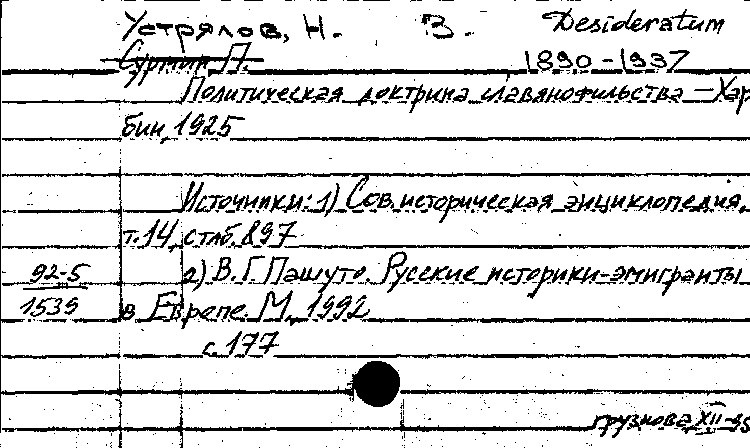 Устрялов, Н. З. Desideratum
1890-1937
Политическая доктрина славянофильства – Хар
бин, 1925
Источники: 1) Сов. историческая энциклопедия,
т. 14, стлб. 897
92-5 2) В. Г. Пашуто. Русские историки-эмигранты
1539 в Европе. М., 1992
с. 177
грузнова XII-95